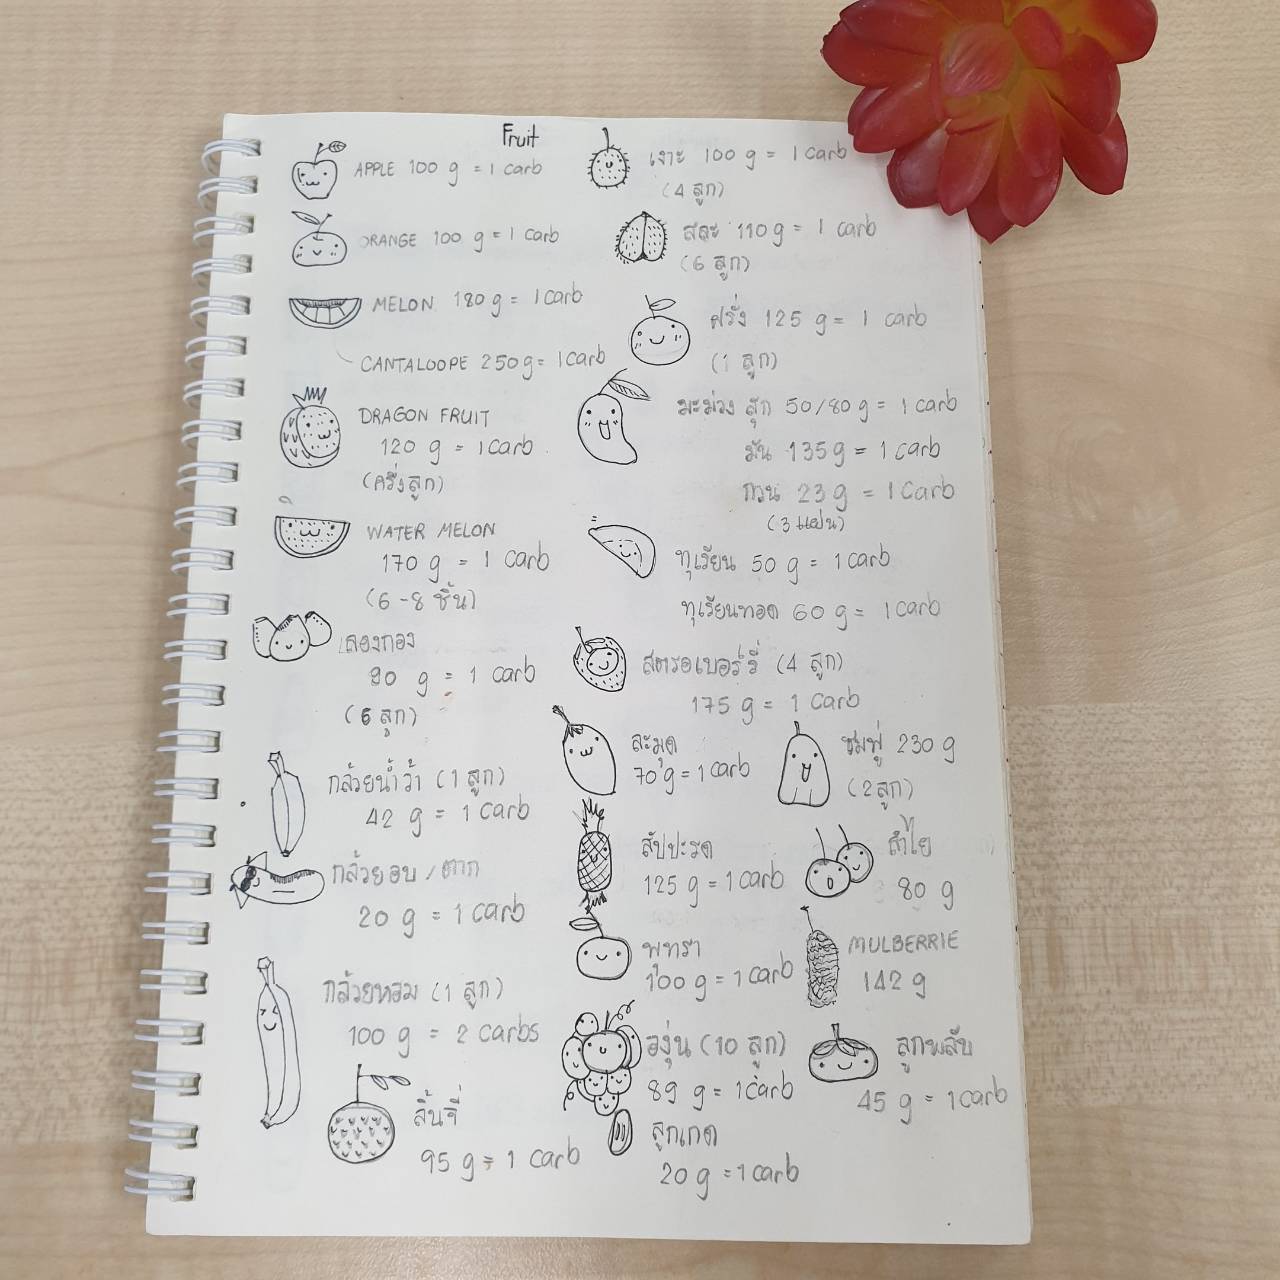 Fruit
APPLE 100 g = 1 carb
ORANGE 100 g = 1 carb
MELON 180 g = 1 carb
CANTALOOPE 250 g = 1 carb
DRAGON FRUIT
120 g = 1 carb
(ครึ่งลูก)
WATER MELON
170 g = 1 carb
(6-8 ชิ้น)
ลองกอง
90 g = 1 carb
(6 ลูก)
กล้วยน้ำว้า (1 ลูก)
42 g = 1 carb
กล้วยอบ/ตาก
20 g = 1 carb
กล้วยหอม (1 ลูก)
100 g = 2 carbs
ลิ้นจี่
95 g = 1 carb
เงาะ 100 g = 1 carb
(4 ลูก)
สละ 110 g = 1 carb
(6 ลูก)
ฝรั่ง 125 g = 1 carb
(1 ลูก)
มะม่วง สุก 50/80 g = 1 carb
มัน 135 g = 1 carb
กวน 23 g = 1 carb
(3 แผ่น)
ทุเรียน 50 g = 1 carb
ทุเรียนทอด 60 g = 1 carb
สตรอเบอร์รี่ (4 ลูก)
175 g = 1 carb
ละมุด
70 g = 1 carb
ชมพู่ 230 g
(2 ลูก)
สัปปะรด
125 g = 1 carb
ลำไย
80 g
พุทรา
100 g = 1 carb
MULBERRIE
142 g
องุ่น (10 ลูก)
89 g = 1 carb
ลูกพลับ
45 g = 1 carb
ลูกเกด
20 g = 1 carb